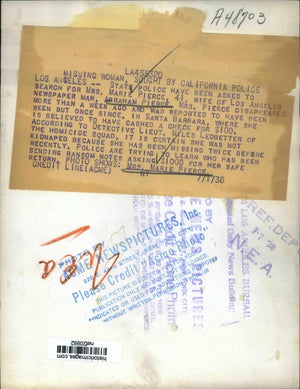 A48903
LA458320
MISSING WOMAN, SOUGHT BY CALIFORNIA POLICE
LOS ANGELES -- STATE POLICE HAVE BEEN ASKED TO
SEARCH FOR MRS. MARIE PIERCE, 41, WIFE OF LOS ANGELES
NEWSPAPER MAN, ABRAHAM PIERCE. MRS. PIERCE DISAPPEARED
MORE THAN A WEEK AGO AND WAS REPORTED TO HAVE BEEN
SEEN BUT ONCE SINCE, IN SANTA BARBARA, WHERE SHE
IS BELIEVED TO HAVE CASHED A CHECK FOR $100.
ACCORDING TO DETECTIVE LIEUT. MILES LEDBETTER OF
THE HOMICIDE SQUAD, IT IS CERTAIN SHE WAS NOT
KIDNAPED BECAUSE SHE HAS BEEN MISSING TWICE BEFORE
RECENTLY. POLICE ARE TRYING TO LEARN WHO HAS BEEN
SENDING RANSOM NOTES ASKING $1000 FOR HER SAFE
RETURN. PHOTO SHOWS: MRS. MARIE PIERCE.
CREDIT LINE(ACME) 7/7/38
REF. DEPT.
7 38
N.E.A.
LOS ANGELES BUREAU
Daily News Building
ACME NEWSPICTURES, Inc.
Please Credit "Acme Photo"
THIS PICTURE IS
PUBLICATION ONLY
SYNDICATED OR USED
WITHOUT WRITTEN PERMISSION
NEWSPICTURES
historicimages.com
nef20992